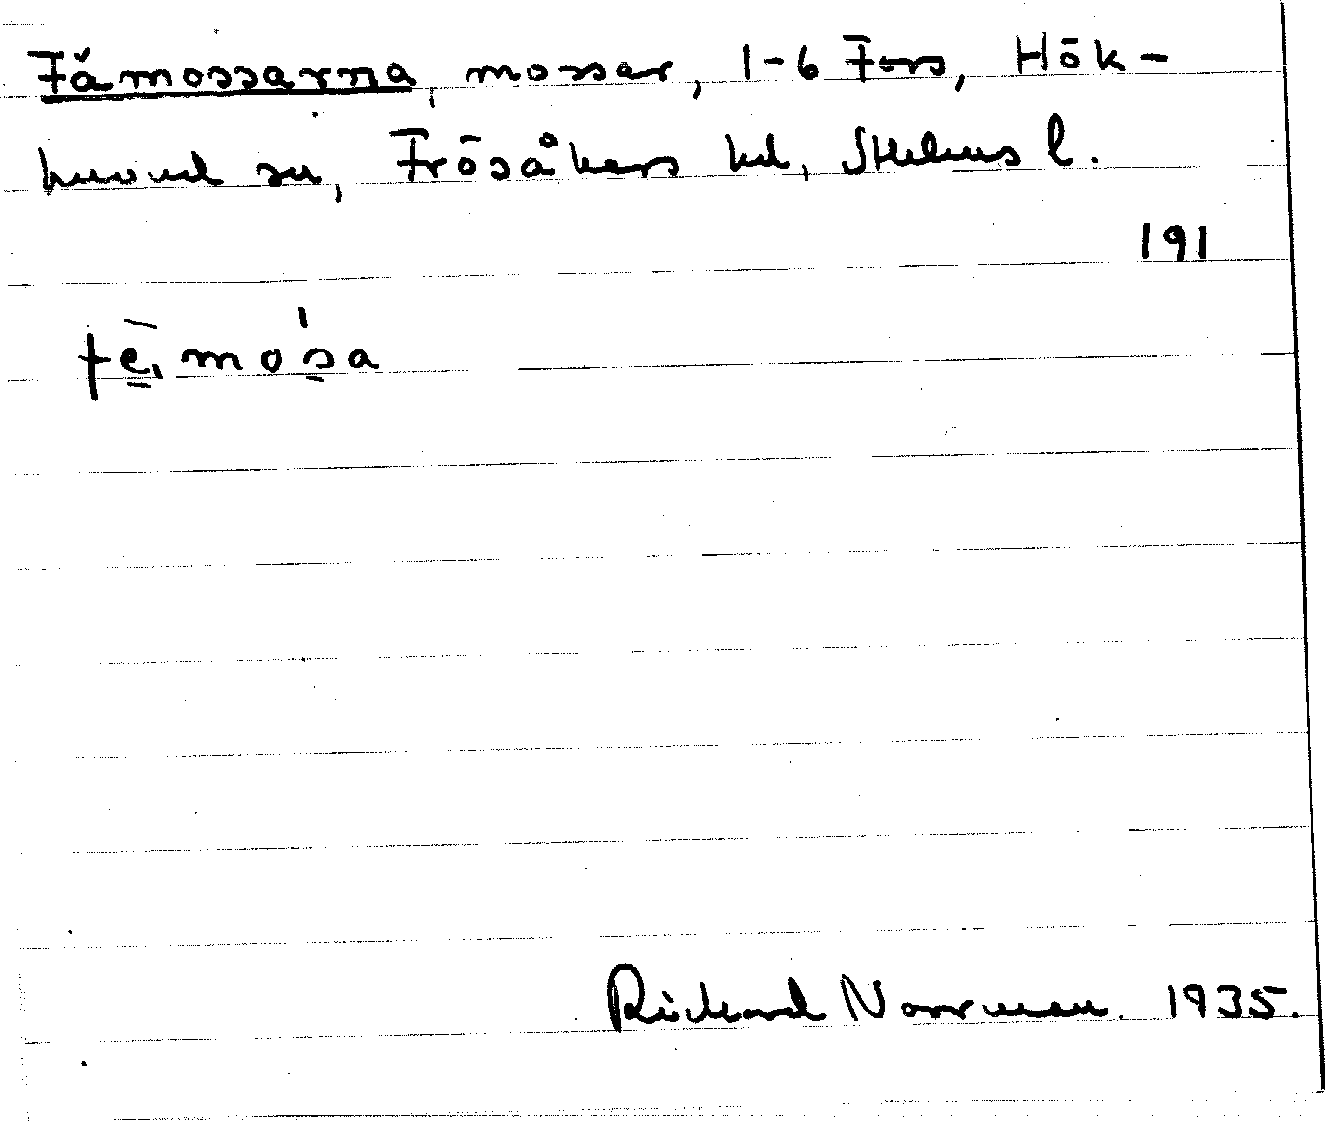 Fämossarna, mossar, 1-6 Fors, Hök-
huvud sn, Frösåkers hd, Sthlms l.
191
fè̱, mos̱a
Richard Norrman. 1935.